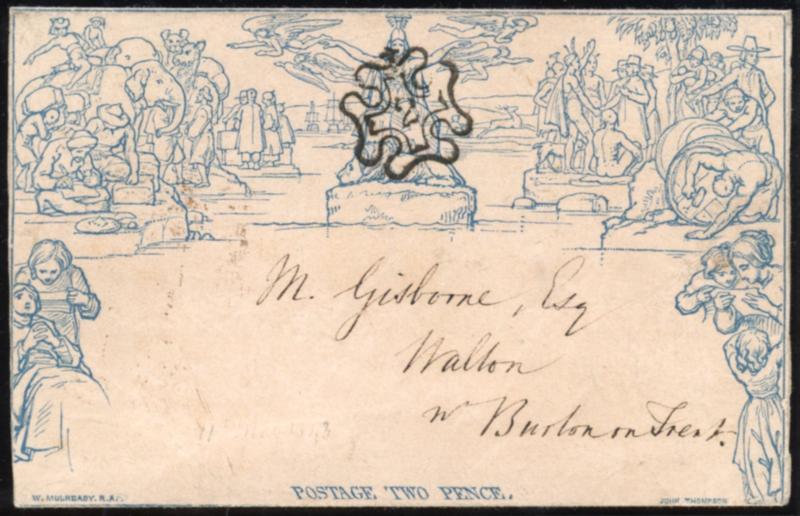 M. Gisborne, Esq
Walton
nr Burton on Trent.
W. MULREADY. R.A.
POSTAGE TWO PENCE.
JOHN THOMPSON